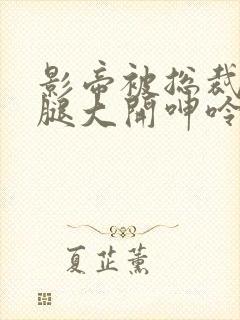 影帝被总裁
腿大开呻吟
夏芷薰